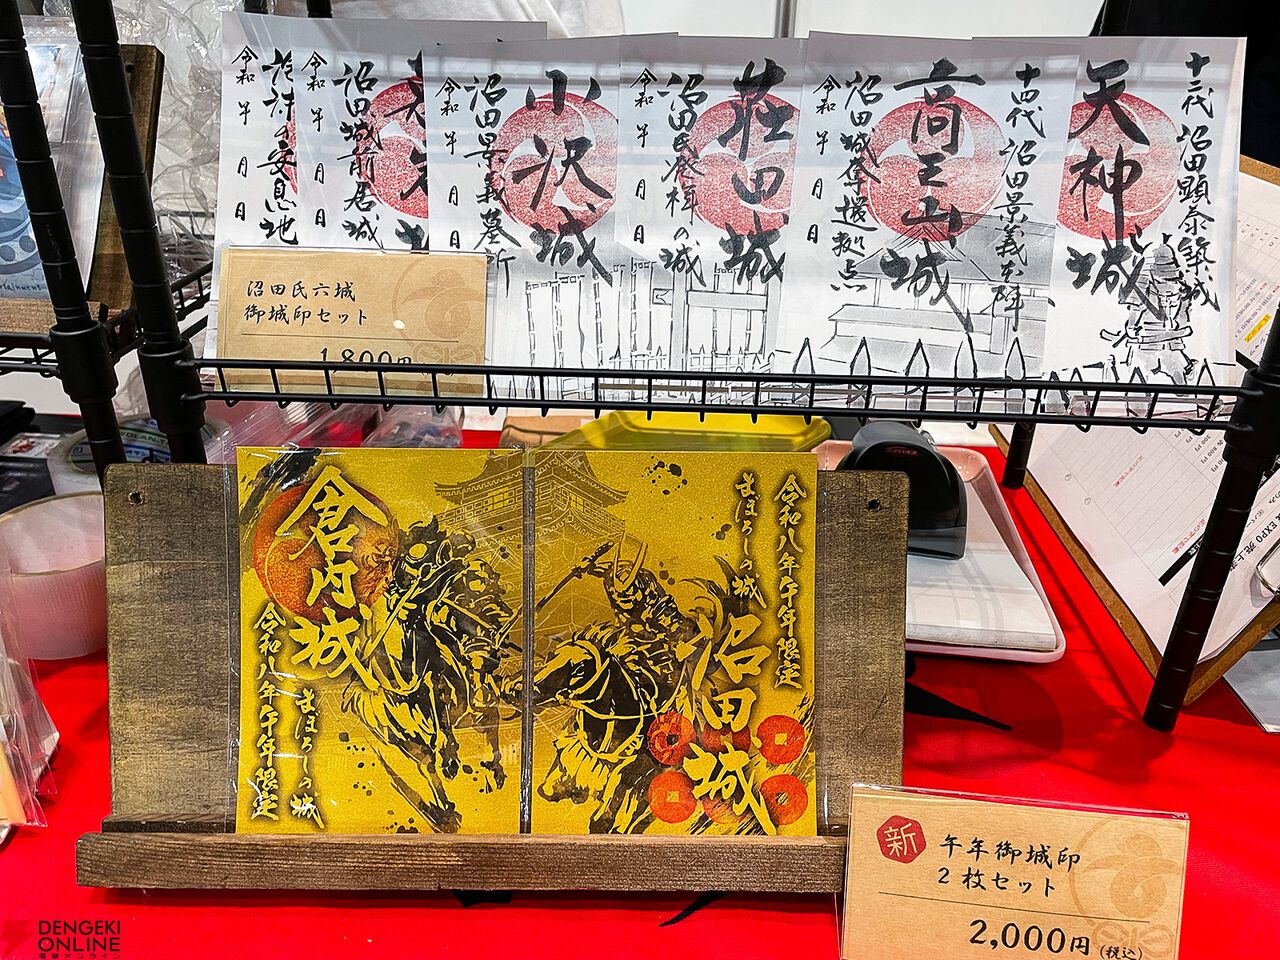 十二代 沼田顕泰築城
天神城
十四代 沼田景義本陣
高王山城
沼田城奪還拠点
令和 年 月 日
荘田城
沼田氏発祥の城
令和 年 月 日
小沢城
沼田景義墓所
令和 年 月 日
沼田城前居城
令和 年 月 日
安息地
令和 年 月 日
沼田氏六城
御城印セット
1,800円
令和八年午年限定
まぼろしの城
沼田城
倉内城
まぼろしの城
令和八年午年限定
新
午年御城印
2枚セット
2,000円(税込)
EXPO 売上
DENGEKI
ONLINE
電撃オンライン